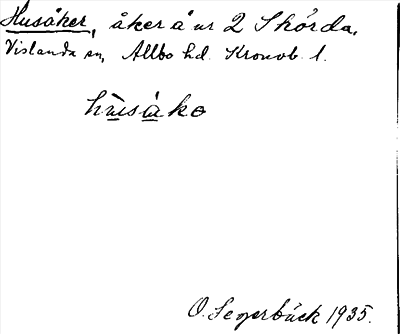 Husåker, åker å nr 2 Skörda,
Vislanda sn, Allbo hd. Kronob. l.
O. Segerbäck 1935.